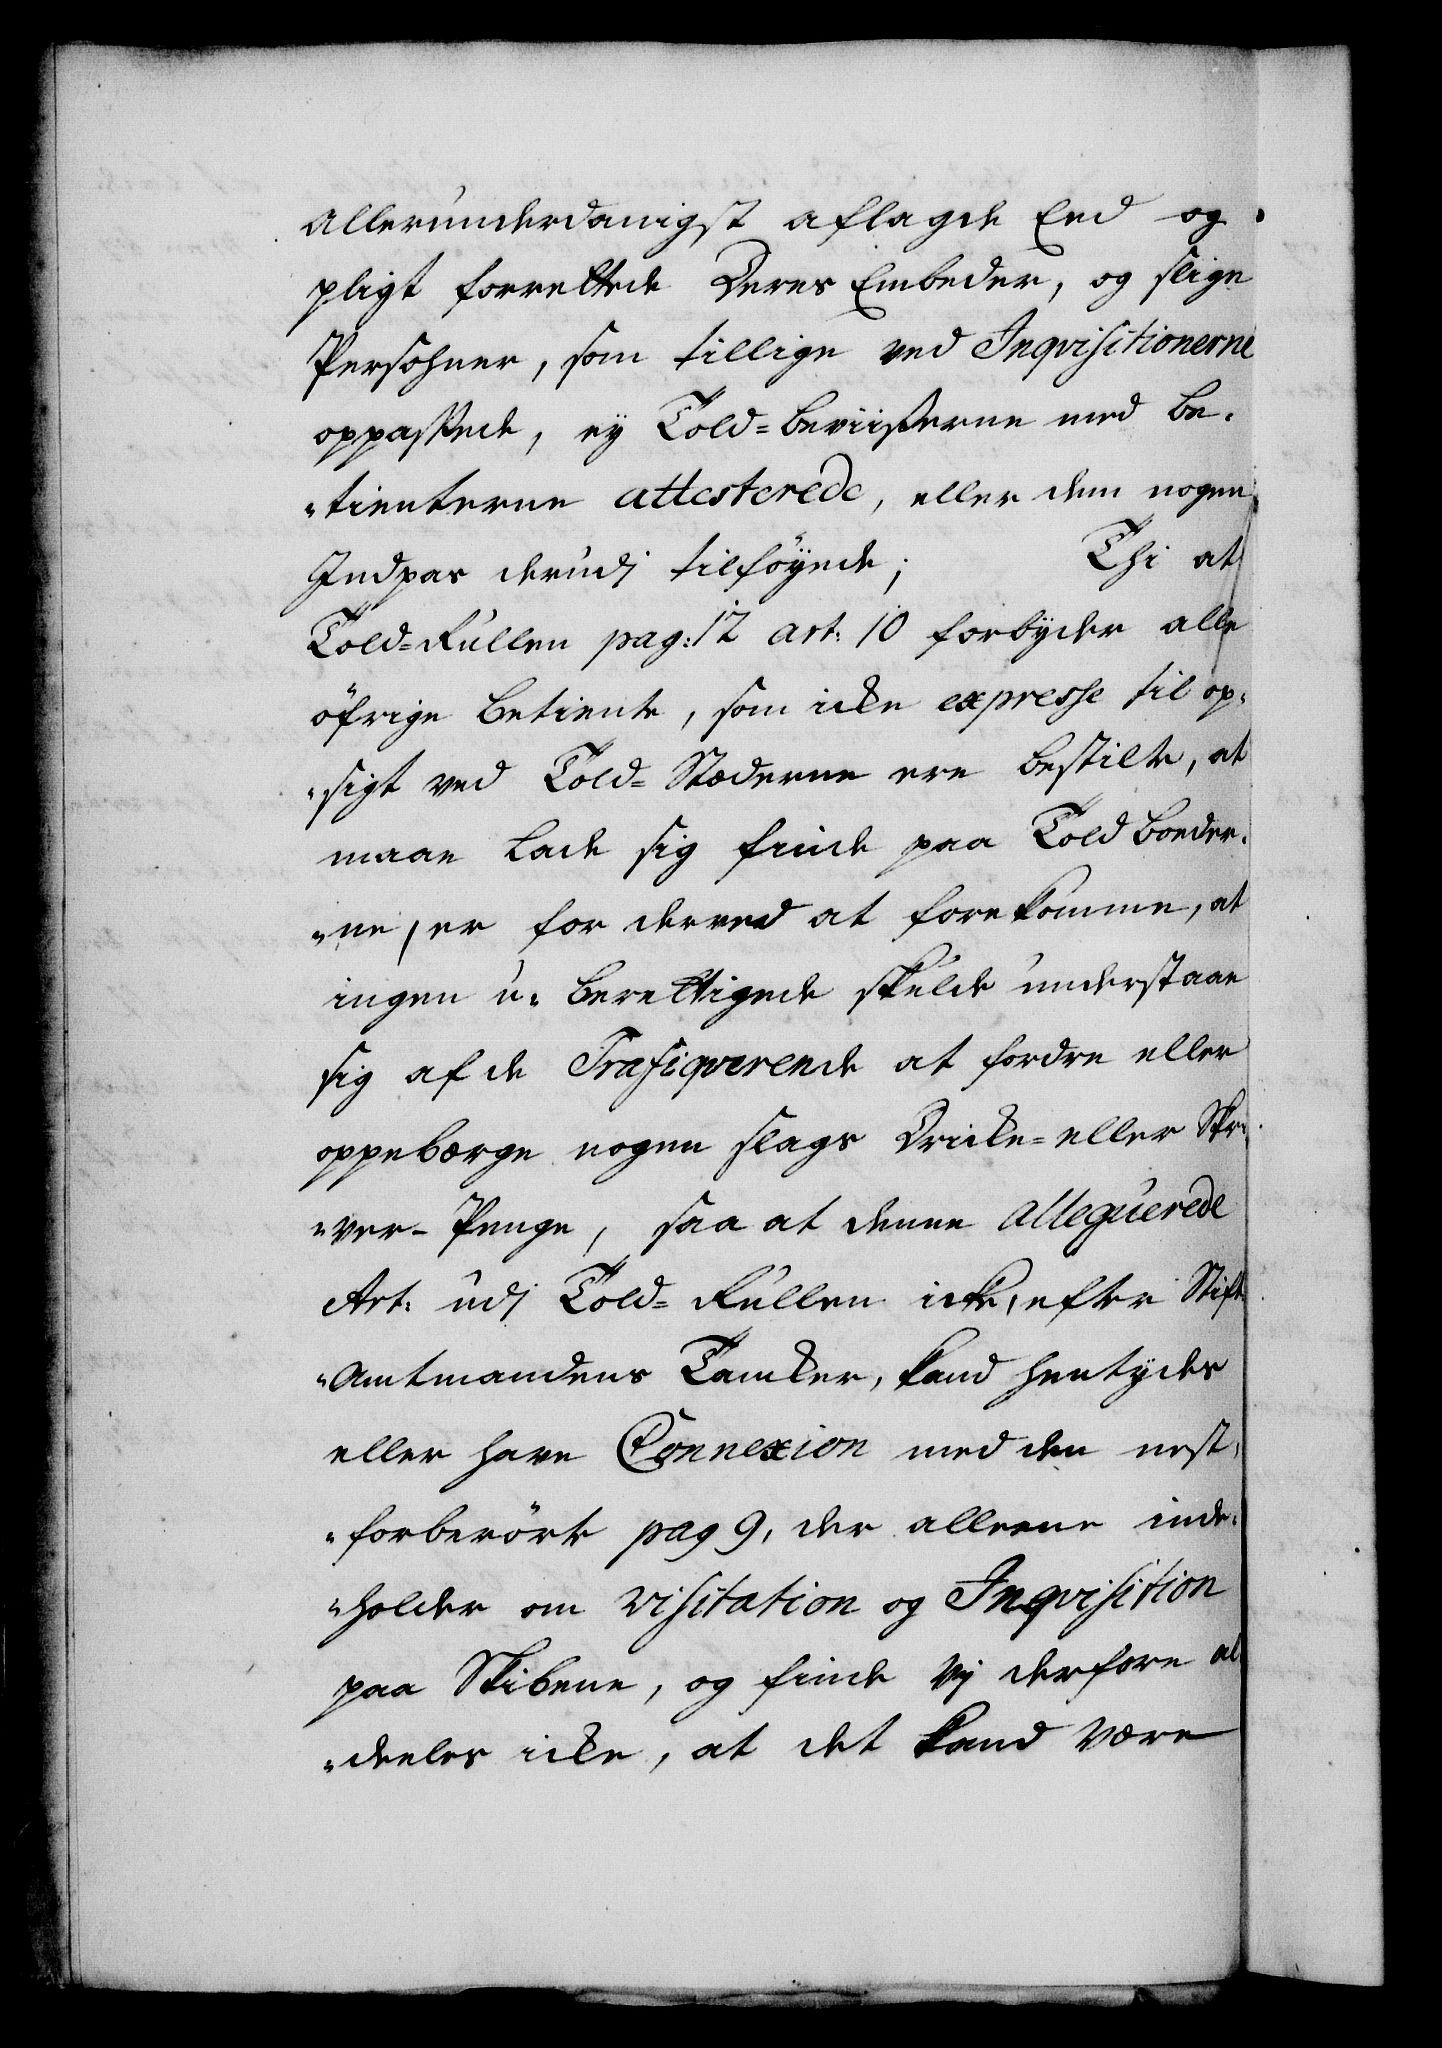 allerunderdanigst aflagde Eed og
pligt forrettede Deres Embeder, og slige
Persohner, som tillige ved Inqvisitionerne
oppassede, ey Told=Beviiserne med Be-
"tienterne attesterede, eller dem nogen
Indpas derudj tilföyede; Thi at
Told=Rullen pag: 12 art: 10 forbyder alle
öfrige Betiente, som icke expresse til op-
"sigt ved Told=Stæderne ere bestilte, at
maae lade sig finde paa Told Boeder-
"ne, er for derved at forekomme, at
ingen u-berettigede skulde understaae
sig af de Trafiqverende at fordre eller
oppebærge nogen slags Dricke= eller Skri-
"ver-Penge, saa at denne alleguerede
Art: udj Told=Rullen icke, efter Stift
"Amtmandens Tancker, kand hentydes
eller have Connexion med den nest-
"forberörte pag 9, der alleene inde-
"holder om Visitation og Inqvisition
paa Skibene, og finde Vj derfore al
"deeles icke, at det kand være